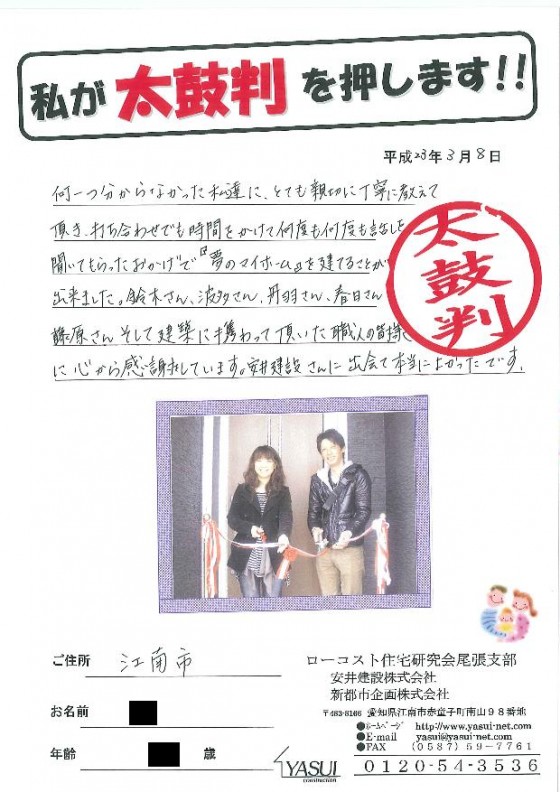 私が太鼓判を押します!!
平成23年3月8日
何一つ分からなかった私達に、とても親切に丁寧に教えて
頂き、打ち合わせでも時間をかけて何度も何度も話しを
聞いてもらったおかげで『夢のマイホーム』を建てることが
出来ました。鈴木さん、波多さん、丹羽さん、春日さん
藤原さんそして建築に携わって頂いた職人の皆様
に心から感謝しています。安井建設さんに出会て本当によかったです。
太鼓判
ご住所 江南市
お名前
年齢 歳
ローコスト住宅研究会尾張支部
安井建設株式会社
新都市企画株式会社
〒483-8166 愛知県江南市赤童子町南山98番地
●ホームページ http://www.yasui-net.com
●E-mail yasui@yasui-net.com
●FAX (0587)59-7761
0120-54-3536
YASUI
construction